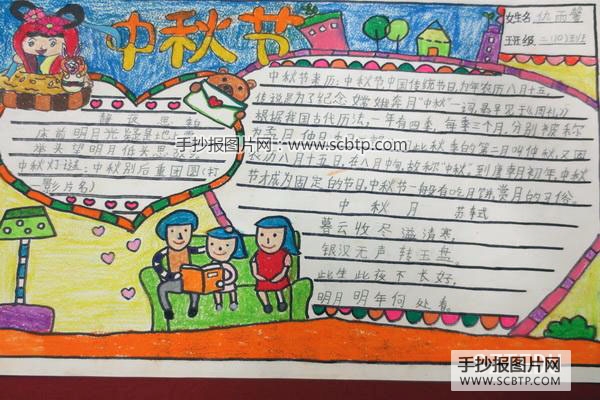 中秋节
女生名 仇雨馨
班级 二(10)班
静夜思
床前明月光,疑是地上霜。
举头望明月,低头思故乡。
中秋灯谜:中秋别后重团圆(打
一影片名)
中秋节来历:中秋节中国传统节日,为年农历八月十五,
传说是为了纪念嫦娥奔月"中秋"一词,最早见于《周礼》
根据我国古代历法,一年有四季,每季三个月,分别被称
为孟月、仲月 此秋季的第二月叫仲秋,又因
农历八月十五日,在八月中旬,故称"中秋",到唐朝初年,中秋
节才成为固定的节日,中秋节一般有吃月饼,赏月的习俗。
中秋月 苏轼
暮云收尽溢清寒,
银汉无声转玉盘。
此生此夜不长好,
明月明年何处看。
手抄报图片网:www.scbtp.com
手抄报图片网
www.scbtp.com
手抄报图片网
WWW.SCBTP.COM